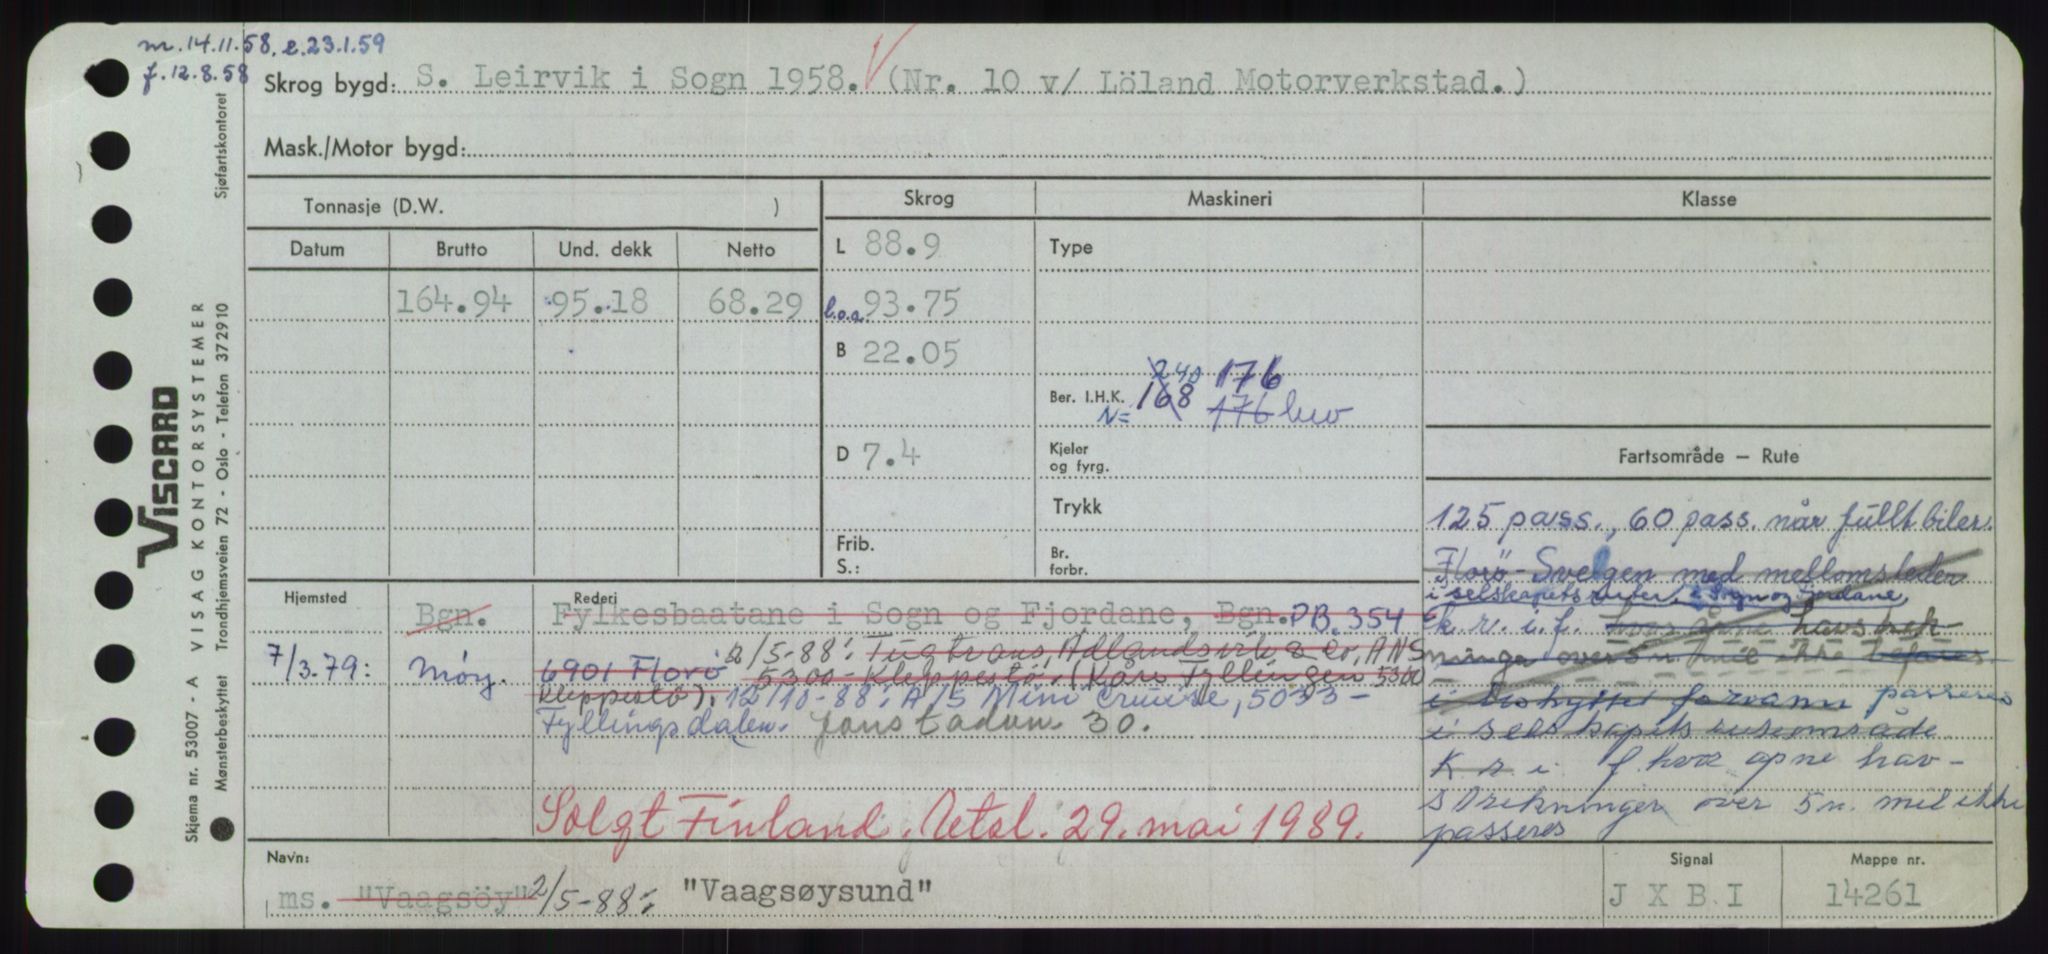 m. 14.11.58, e.23.1.59
f. 12.8.58
Skrog bygd: S. Leirvik i Sogn 1958. (Nr. 10 v/ Löland Motorverkstad.)
Mask./Motor bygd:
Tonnasje (D.W. )
Skrog
Maskineri
Klasse
Datum Brutto Und. dekk Netto
164.94 95.18 68.29
L 88.9
l.o.a. 93.75
B 22.05
D 7.4
Frib.
S.:
Type
240 176
Ber. I.H.K. 168 176 bev
N=
Kjeler
og fyrg.
Trykk
Br.
forbr.
Fartsområde — Rute
125 pass., 60 pass. når fullt biler.
Florö - Svelgen med mellomsteder
i selskapets ruter, i Sogn og Fjordane,
k. r. i. f. hvor åpne havstrek-
ninger over 5 n. mil ikke befares
i beskyttet farvann passeres
i selskapets ruteområde
K r i. f. hvor åpne hav-
strekninger over 5 n. mil ikke
passeres
Hjemsted
Rederi
Bgn. Fylkesbaatane i Sogn og Fjordane, Bgn. PB. 354
7/3.79: Måøy. 6901 Florö 2/5-88: Tugtrans, Adlandsvik & Co, ANS
5300 - Kleppestö. (Kåre Fyllingen 5300
Kleppestö). 12/10-88: A/S Mini Cruise, 5033 -
Fyllingsdalen. Jonstadvn 30.
Solgt Finland. Netsl. 29. mai 1989.
Navn:
ms. "Vaagsöy" 2/5-88: "Vaagsøysund"
Signal
J X B I
Mappe nr.
14261
VISCARD
Skjema nr. 53007 - A VISAG KONTORSYSTEMER
Mønsterbeskyttet Trondhjemsveien 72 - Oslo - Telefon 372910
Sjøfartskontoret